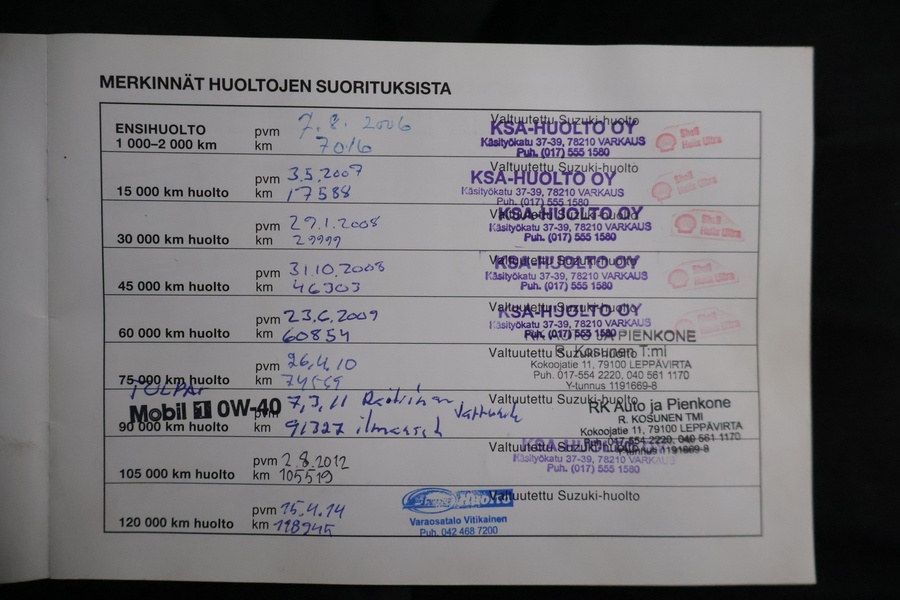 MERKINNÄT HUOLTOJEN SUORITUKSISTA
ENSIHUOLTO pvm 7.8.2006 Valtuutettu Suzuki-huolto
1 000–2 000 km km 7016
KSA-HUOLTO OY
Käsityökatu 37-39, 78210 VARKAUS
Puh. (017) 555 1580
Shell
Helix Ultra
pvm 3.5.2007 Valtuutettu Suzuki-huolto
15 000 km huolto km 17588
KSA-HUOLTO OY
Käsityökatu 37-39, 78210 VARKAUS
Puh. (017) 555 1580
pvm 29.1.2008 Valtuutettu Suzuki-huolto
30 000 km huolto km 29999
KSA-HUOLTO OY
Käsityökatu 37-39, 78210 VARKAUS
Puh. (017) 555 1580
Shell
Helix Ultra
pvm 31.10.2008 Valtuutettu Suzuki-huolto
45 000 km huolto km 46303
KSA-HUOLTO OY
Käsityökatu 37-39, 78210 VARKAUS
Puh. (017) 555 1580
Shell
Helix Ultra
pvm 23.6.2009 Valtuutettu Suzuki-huolto
60 000 km huolto km 60854
KSA-HUOLTO OY
Käsityökatu 37-39, 78210 VARKAUS
Puh. (017) 555 1580
pvm 26.4.10 Valtuutettu Suzuki-huolto
75 000 km huolto km
RK AUTO JA PIENKONE
R. Kosunen T:mi
Kokoojatie 11, 79100 LEPPÄVIRTA
Puh. 017-554 2220, 040 561 1170
Y-tunnus 1191669-8
pvm 7.3.11 Valtuutettu Suzuki-huolto
Mobil 1 0W-40
90 000 km huolto km 91327
RK Auto ja Pienkone
R. KOSUNEN TMI
Kokoojatie 11, 79100 LEPPÄVIRTA
Puh. 017-554 2220, 040 561 1170
Y-tunnus 1191669-8
pvm 2.8.2012 Valtuutettu Suzuki-huolto
105 000 km huolto km 105519
KSA-HUOLTO OY
Käsityökatu 37-39, 78210 VARKAUS
Puh. (017) 555 1580
pvm 15.4.14 Valtuutettu Suzuki-huolto
120 000 km huolto km 118945
Varaosatalo Vitikainen
Puh. 042 468 7200